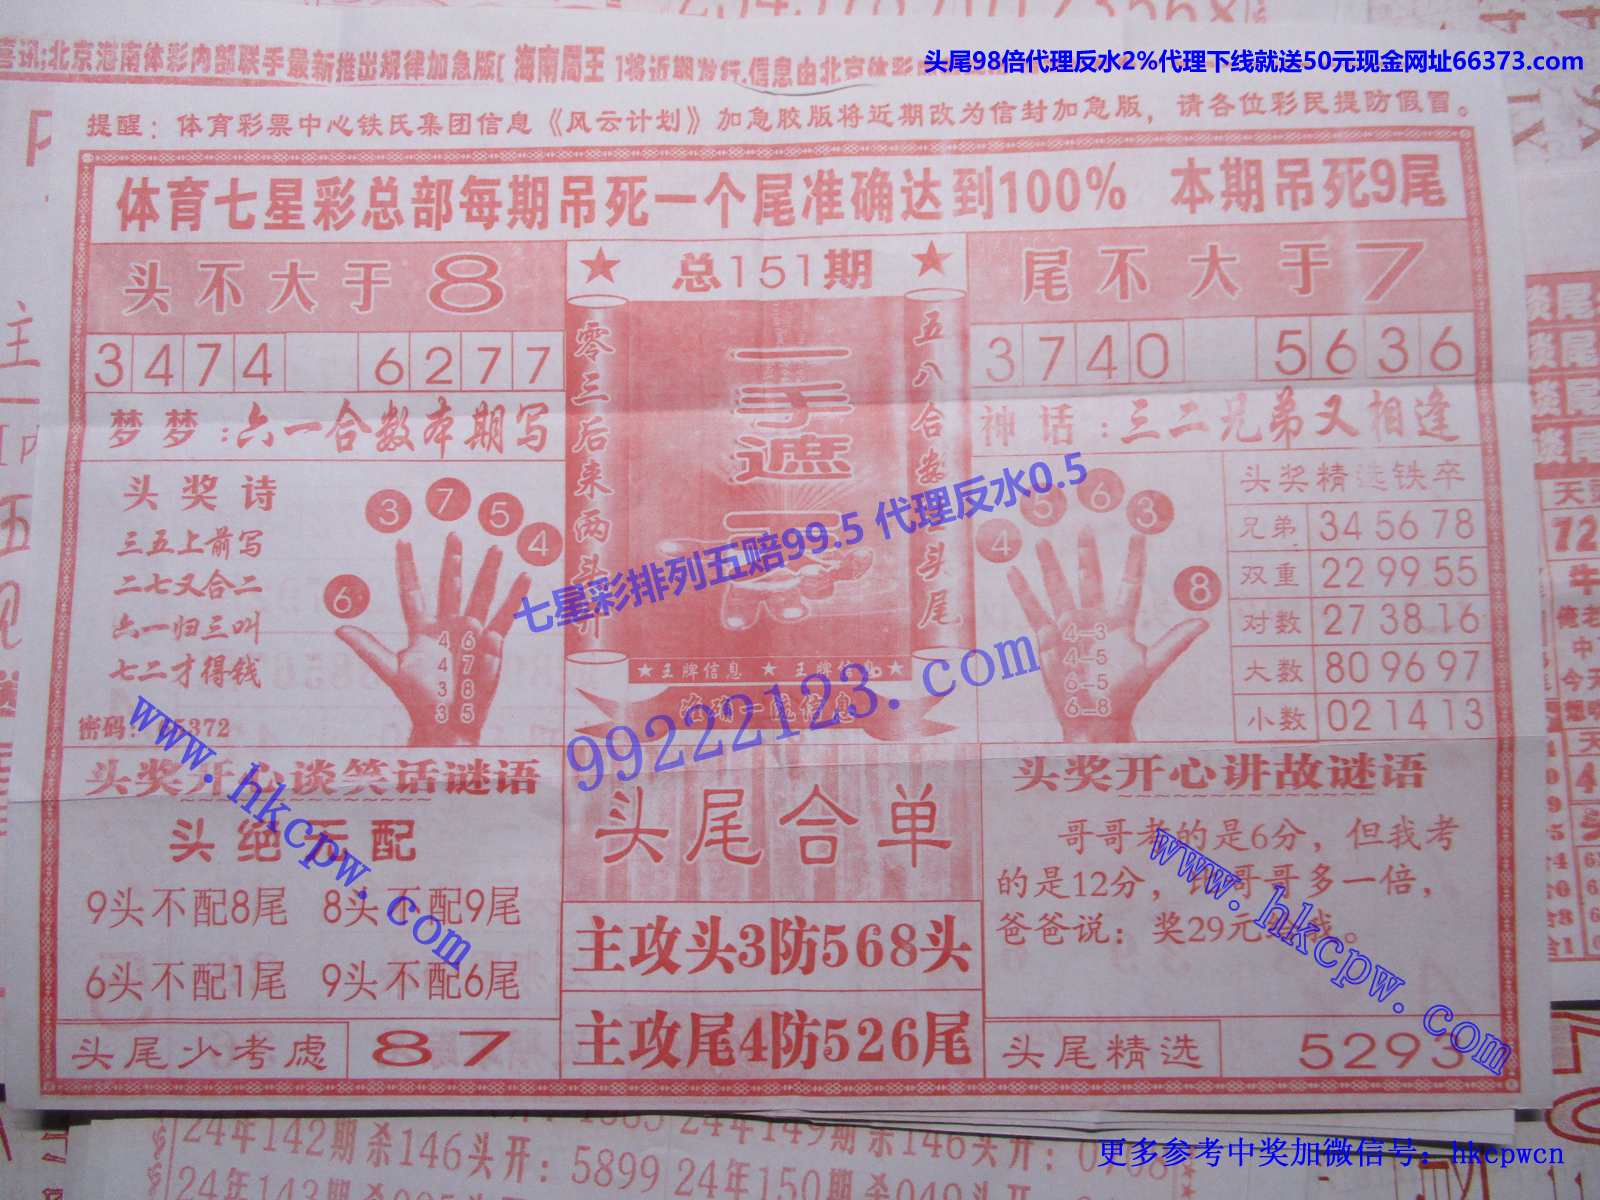 头尾98倍代理反水2%代理下线就送50元现金网址66373.com
喜讯:北京海南体彩内部联手最新推出规律加急版[ 海南局王 ]将近期发行,信息由北京体彩
提醒：体育彩票中心铁氏集团信息《风云计划》加急胶版将近期改为信封加急版，请各位彩民提防假冒。
体育七星彩总部每期吊死一个尾准确达到100% 本期吊死9尾
头不大于8
3474 6277
梦梦:六一合数本期写
头奖诗
三五上前写
二七又合二
六一归三叫
七二才得钱
372
3 7 5 4 6
4 6
4 7
3 8
3 5
★ 总151期 ★
零三后来两头
五八合数 头尾
一手遮
★王牌信息 ★ 王牌信息★
尾不大于7
3740 5636
神话:三二兄弟又相逢
4 5 6 3 8
4—3
4—5
6—5
6—8
头奖精选铁卒
兄弟 34 56 78
双重 22 99 55
对数 27 38 16
大数 80 96 97
小数 02 14 13
七星彩排列五赔99.5 代理反水0.5
99222123.com
www.hkcpw.com
www.hkcpw.com
头奖开心谈笑话谜语
头绝无配
9头不配8尾 8头不配9尾
6头不配1尾 9头不配6尾
头尾少考虑 87
头尾合单
主攻头3防568头
主攻尾4防526尾
头奖开心讲故谜语
哥哥考的是6分，但我考
的是12分， 哥哥多一倍，
爸爸说：奖29元 我。
头尾精选 5293
24年142期杀146头开：5899 24年149期杀146头开：0
更多参考中奖加微信号：hkcpwcn